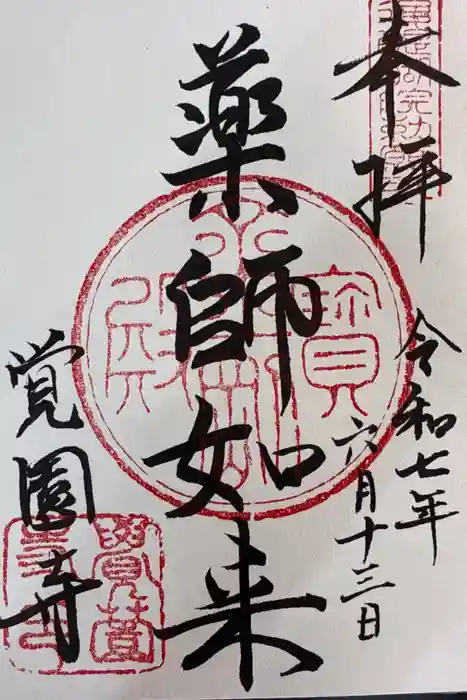 奉拝
令和七年
六月十三日
薬師如来
覚園寺